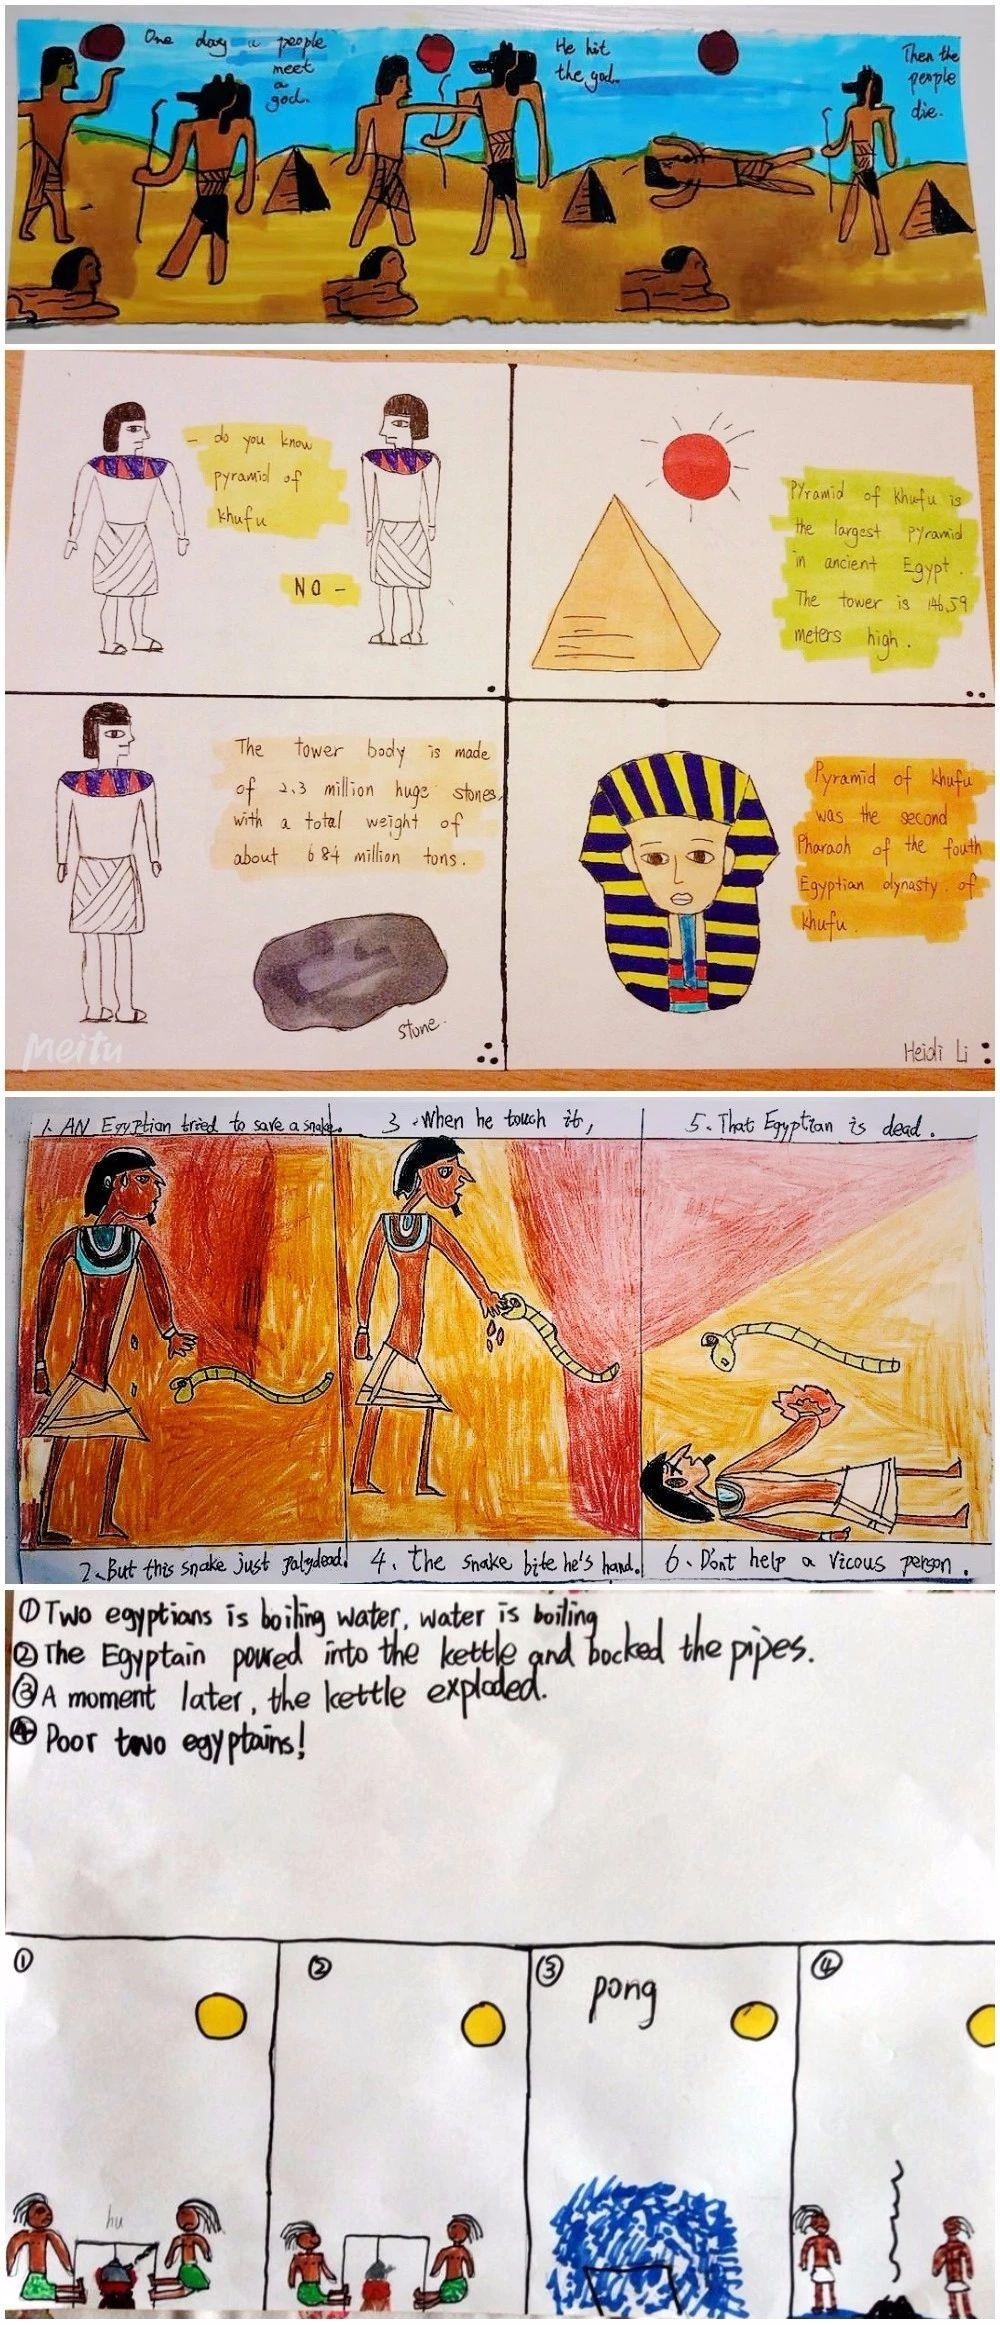 One day a people
meet
a
god.
He hit
the god.
Then the
people
die.
- do you know
pyramid of
khufu
NO -
Pyramid of Khufu is
the largest pyramid
in ancient Egypt.
The tower is 146.59
meters high.
The tower body is made
of 2.3 million huge stones,
with a total weight of
about 684 million tons.
stone.
Meitu
Pyramid of khufu
was the second
Pharaoh of the fouth
Egyptian dynasty of
khufu.
Heidi Li
1. AN Egyptian tried to save a snake.
3. When he touch it,
5. That Egyptian is dead.
2. But this snake just palydead.
4. the snake bite he's hand.
6. D'ont help a vicous person.
① Two egyptians is boiling water, water is boiling
② The Egyptain poured into the kettle and bocked the pipes.
③ A moment later, the kettle exploded.
④ Poor two egyptains!
①
②
③
④
pong
hu